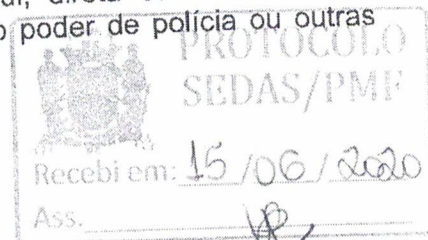 o poder de polícia ou outras
PROTOCOLO
SEDAS/PMF
Recebi em: 15/06/2020
Ass.